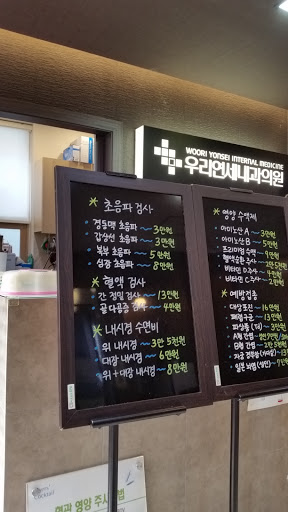 WOORI YONSEI INTERNAL MEDICINE
우리연세내과의원
* 초음파 검사
• 경동맥 초음파 ~ 3만원
• 갑상선 초음파 ~ 3만원
• 복부 초음파 ~ 5만원
• 심장 초음파 ~ 8만원
* 혈액 검사
• 간 정밀 검사 ~ 13만원
• 골다공증 검사 ~ 4만원
* 내시경 수면비
• 위 내시경 ~ 3만 5천원
• 대장 내시경 ~ 6만원
• 위 + 대장 내시경 ~ 8만원
* 영양 수액제
• 아미노산 A ~ 3만원
• 아미노산 B ~ 5만원
• 프리미엄 영양
• 혈액순환 주사
• 비타민 D 주사
• 비타민 C 주사
* 예방접종
• 대상포진 ~ 16만원
• 폐렴구균 ~ 13만원
• 파상풍 ~ 3만원
• A형 간염
• B형 간염
• 자궁 경부암
• 일본 뇌염 ~ 7만원
영양 주사